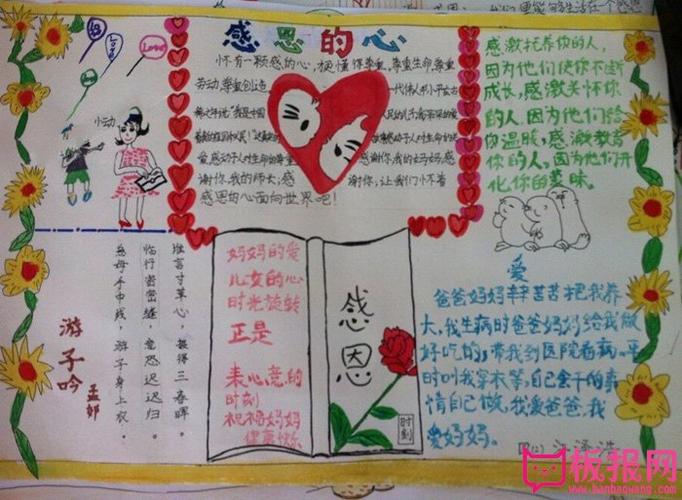 感恩的心
怀有一颗感恩的心,更懂得尊重,尊重生命,尊重
劳动,尊重创造
一代伟人邓小平古
稀之年说"我是中国
人民的儿子
爱,感动了人对生命的尊重
感谢你,我的妈妈,感
谢你,我的师长,感
谢你,让我们
感恩的心面向世界吧!
Love
感激抚养你的人,
因为他们使你不断
成长,感激关怀你
的人,因为他们给
你温暖,感激教育
你的人,因为他们开
化你的蒙昧。
游子吟
孟郊
慈母手中线,游子身上衣。
临行密密缝,意恐迟迟归。
谁言寸草心,报得三春晖。
妈妈的爱
儿女的心
时光旋转
正是
表心意的
时刻
祝福妈妈
健康快乐
感恩
时刻
爱
爸爸妈妈辛辛苦苦把我养
大,我生病时爸爸妈妈给我做
好吃的,带我到医院看病。平
时叫我穿衣等,自己会干的事
情自己做,我爱爸爸,我
爱妈妈。
板报网
www.banbaowang.com